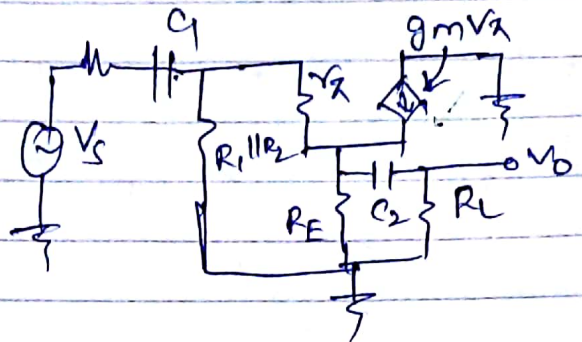 C1
gmVπ
rπ
Vs
R1||R2
Vo
RE
C2
RL